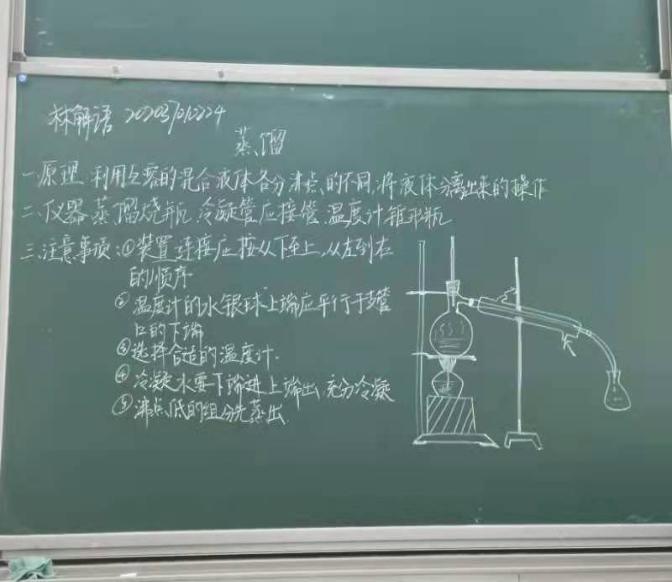 林解语 202037012224
蒸馏
一.原理 利用互溶的混合液体各分沸点的不同,将液体分离出来的操作
二.仪器 蒸馏烧瓶.冷凝管应接管.温度计锥形瓶
三.注意事项:①装置连接应按从下至上,从左到右
的顺序
②温度计的水银球上端应平行于支管
口的下端
③选择合适的温度计.
④冷凝水要下端进上端出,充分冷凝
⑤沸点低的组分先蒸出.